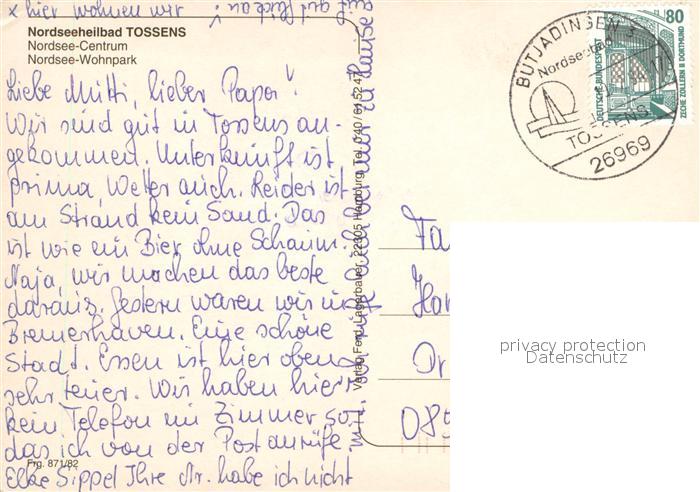 x hier wohnen wir
Nordseeheilbad TOSSENS
Nordsee-Centrum
Nordsee-Wohnpark
Liebe Mutti, lieber Papa!
Wir sind gut in Tossens an-
gekommen. Unterkunft ist
prima, Wetter auch. Leider ist
am Strand kein Sand. Das
ist wie ein Bier ohne Schaum.
Naja, wir machen das beste
daraus. Gestern waren wir in
Bremerhaven. Eine schöne
Stadt. Essen ist hier oben
sehr teuer. Wir haben hier
kein Telefon im Zimmer so
das ich von der Post anrufe.
Elke Sippel Ihre Nr. habe ich nicht
Frg. 871/82
Verlag Ferd. Lagerbauer, 22305 Hamburg, Tel. 040/61 52 47
BUTJADINGEN 3
Nordseebad
TOSSENS
26969
80
DEUTSCHE BUNDESPOST
ZECHE ZOLLERN II DORTMUND
Fa
Ha
Dr
089
privacy protection
Datenschutz